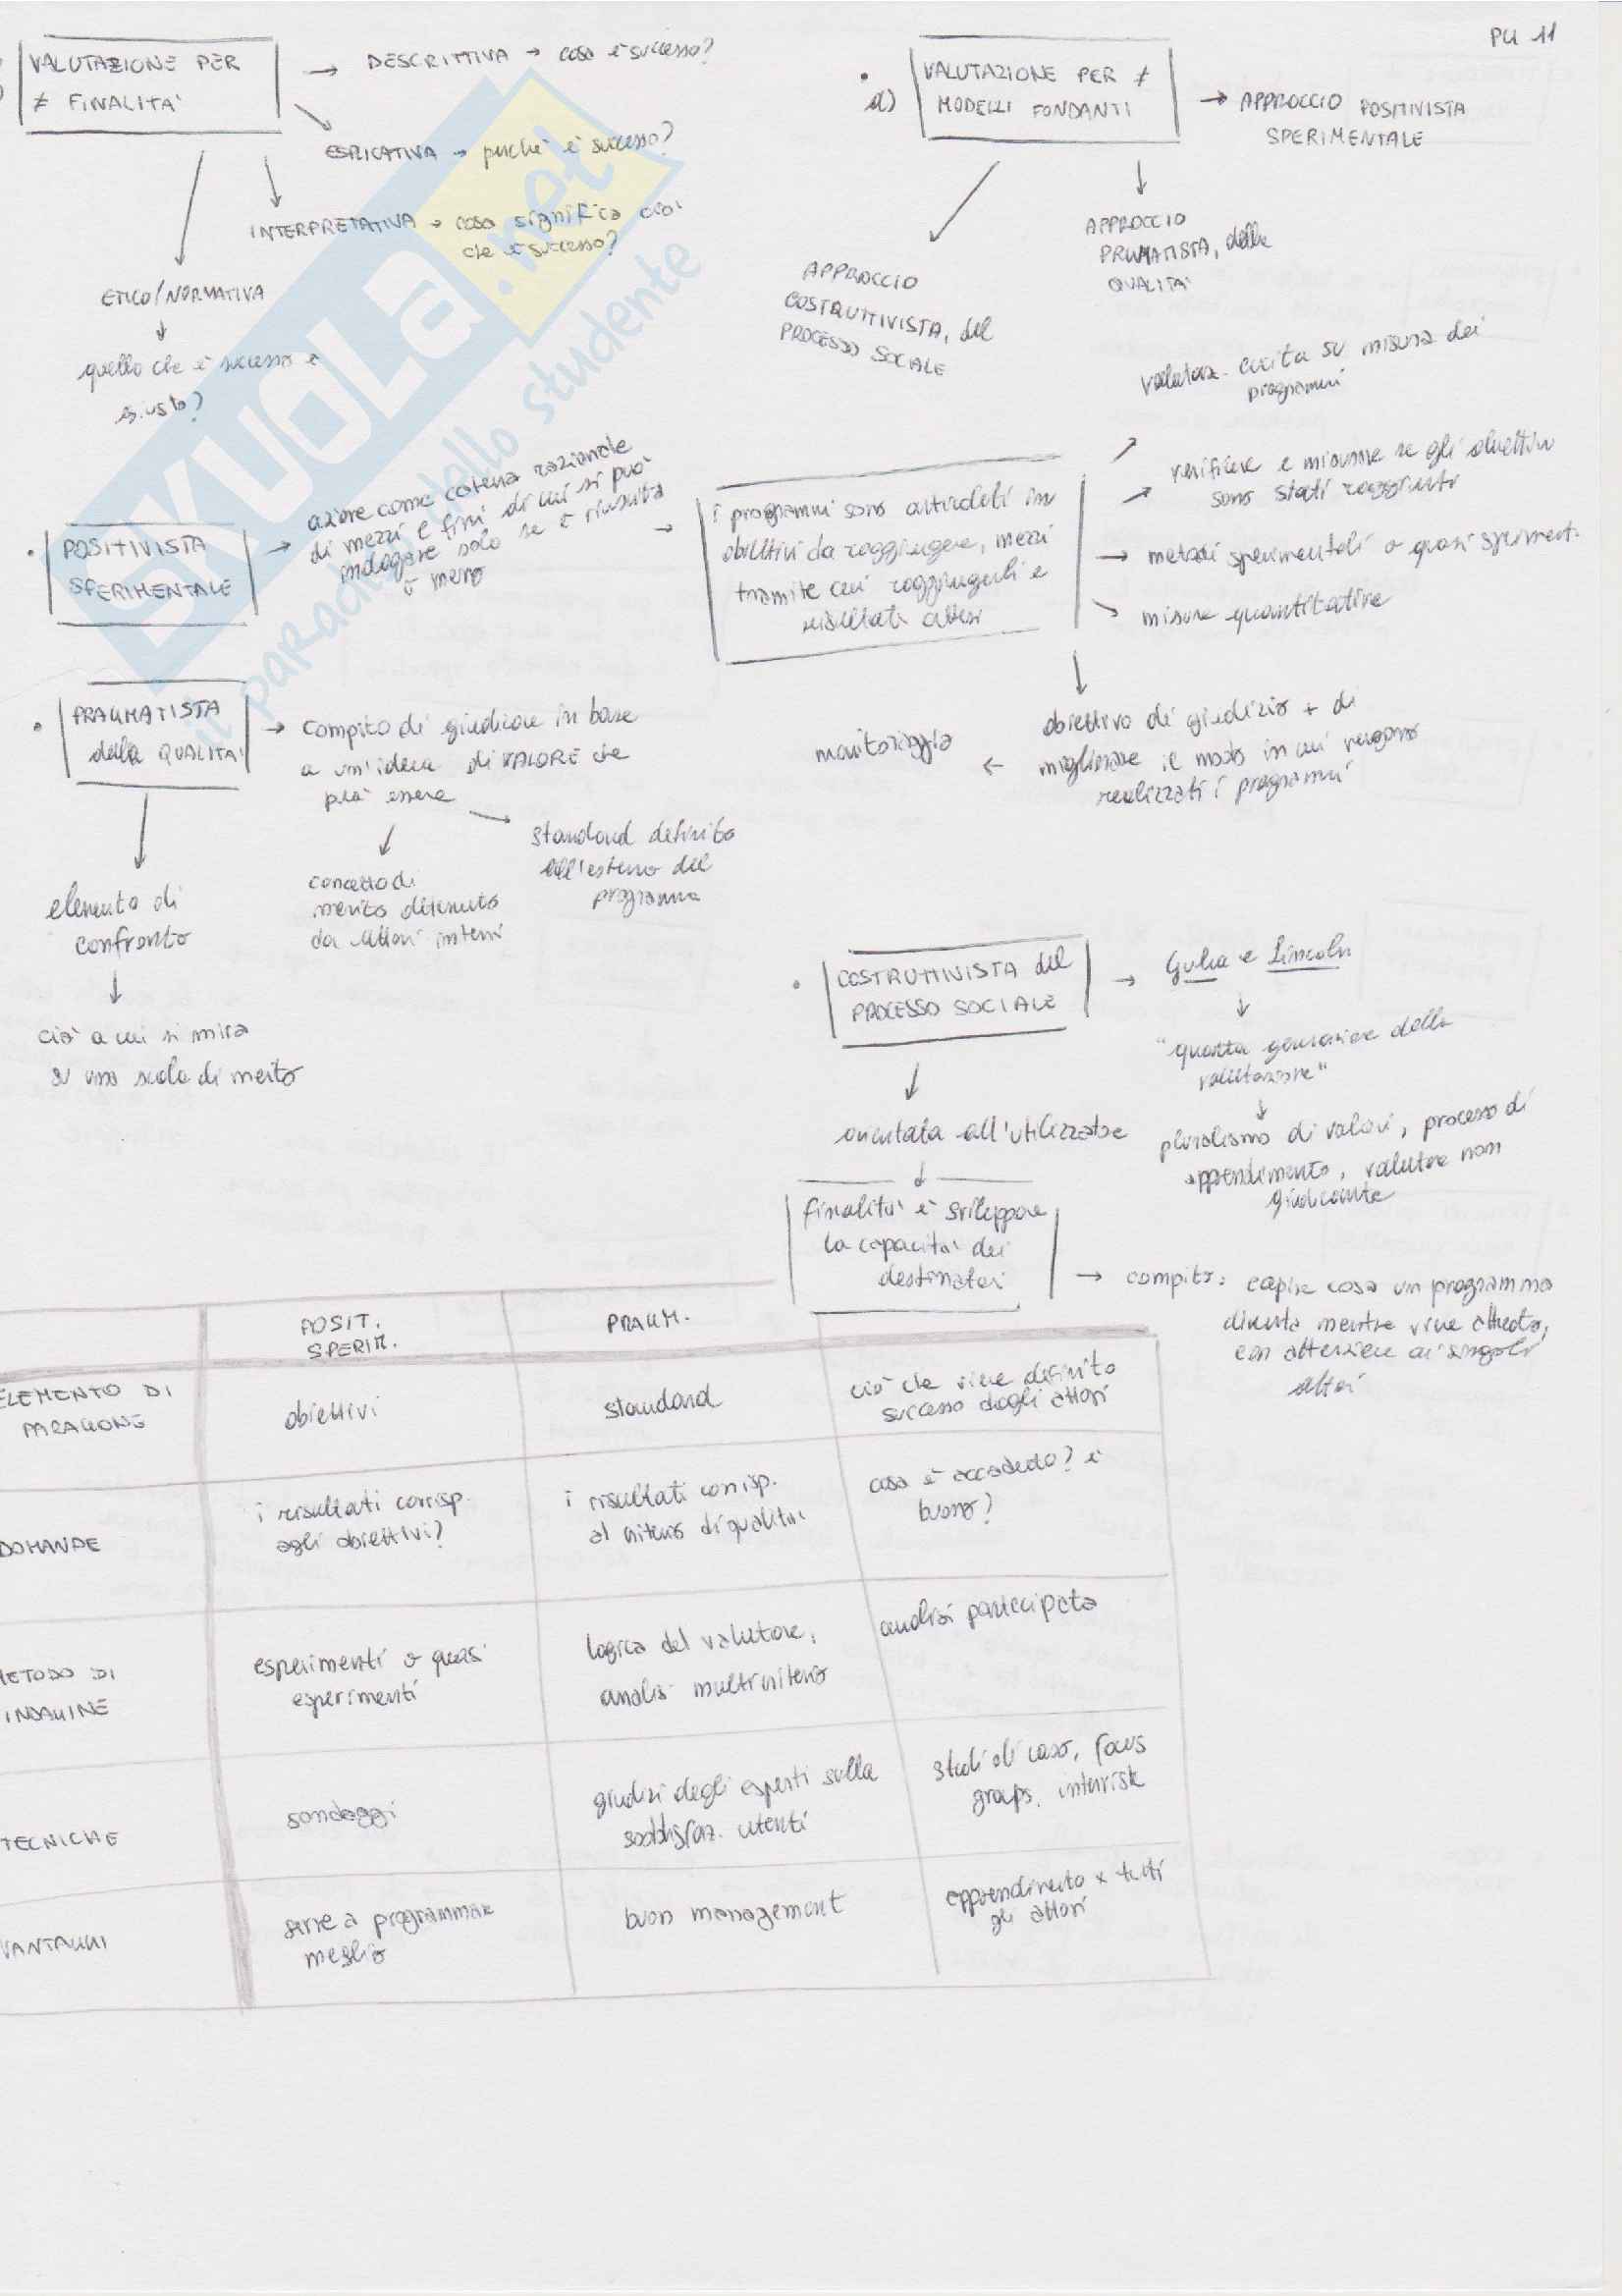 PG 11
VALUTAZIONE PER
≠ FINALITA'
→ DESCRITTIVA → cosa è successo?
ESPLICATIVA → perché è successo?
INTERPRETATIVA → cosa significa ciò
che è successo?
ETICO/NORMATIVA
↓
quello che è successo è
giusto?
d)
VALUTAZIONE PER ≠
MODELLI FONDANTI
→ APPROCCIO POSITIVISTA
SPERIMENTALE
APPROCCIO
PRAGMATISTA, della
QUALITA'
APPROCCIO
COSTRUTTIVISTA, del
PROCESSO SOCIALE
• POSITIVISTA
SPERIMENTALE
→ azione come catena razionale
di mezzi e fini di cui si può
indagare solo se è riuscita
o meno
→ i programmi sono articolati in
obiettivi da raggiungere, mezzi
tramite cui raggiungerli e
risultati attesi
valutaz. cucita su misura dei
programmi
verificare e misurare se gli obiettivi
sono stati raggiunti
→ metodi sperimentali o quasi speriment.
misure quantitative
obiettivo di giudizio + di
migliorare il modo in cui vengono
realizzati i programmi
← monitoraggio
• PRAGMATISTA
della QUALITA'
→ compito di giudicare in base
a un'idea di VALORE che
può essere
concetto di
merito detenuto
da attori interni
standard definito
all'esterno del
programma
elemento di
confronto
↓
ciò a cui si mira
su una scala di merito
• COSTRUTTIVISTA del
PROCESSO SOCIALE
→ Guba e Lincoln
↓
"quarta generazione della
valutazione"
↓
pluralismo di valori, processo di
apprendimento, valutare non
giudicante
orientata all'utilizzatore
↓
finalità è sviluppare
la capacità dei
destinatari
→ compito: capire cosa un programma
diventa mentre viene attuato,
con attenzione ai singoli
attori
POSIT.
SPERIM.
PRAGM.
ELEMENTO DI
PARAGONE
obiettivi
standard
ciò che viene definito
successo dagli attori
DOMANDE
i risultati corrisp.
agli obiettivi?
i risultati corrisp.
al criterio di qualità
cosa è accaduto? è
buono?
METODO DI
INDAGINE
esperimenti o quasi
esperimenti
logica del valutatore,
analisi multicriterio
analisi partecipata
TECNICHE
sondaggi
giudizi degli esperti sulla
soddisfaz. utenti
studi di caso, focus
groups, interviste
VANTAGGI
serve a programmare
meglio
buon management
apprendimento x tutti
gli attori
SKUOLA.net
il paradiso dello studente